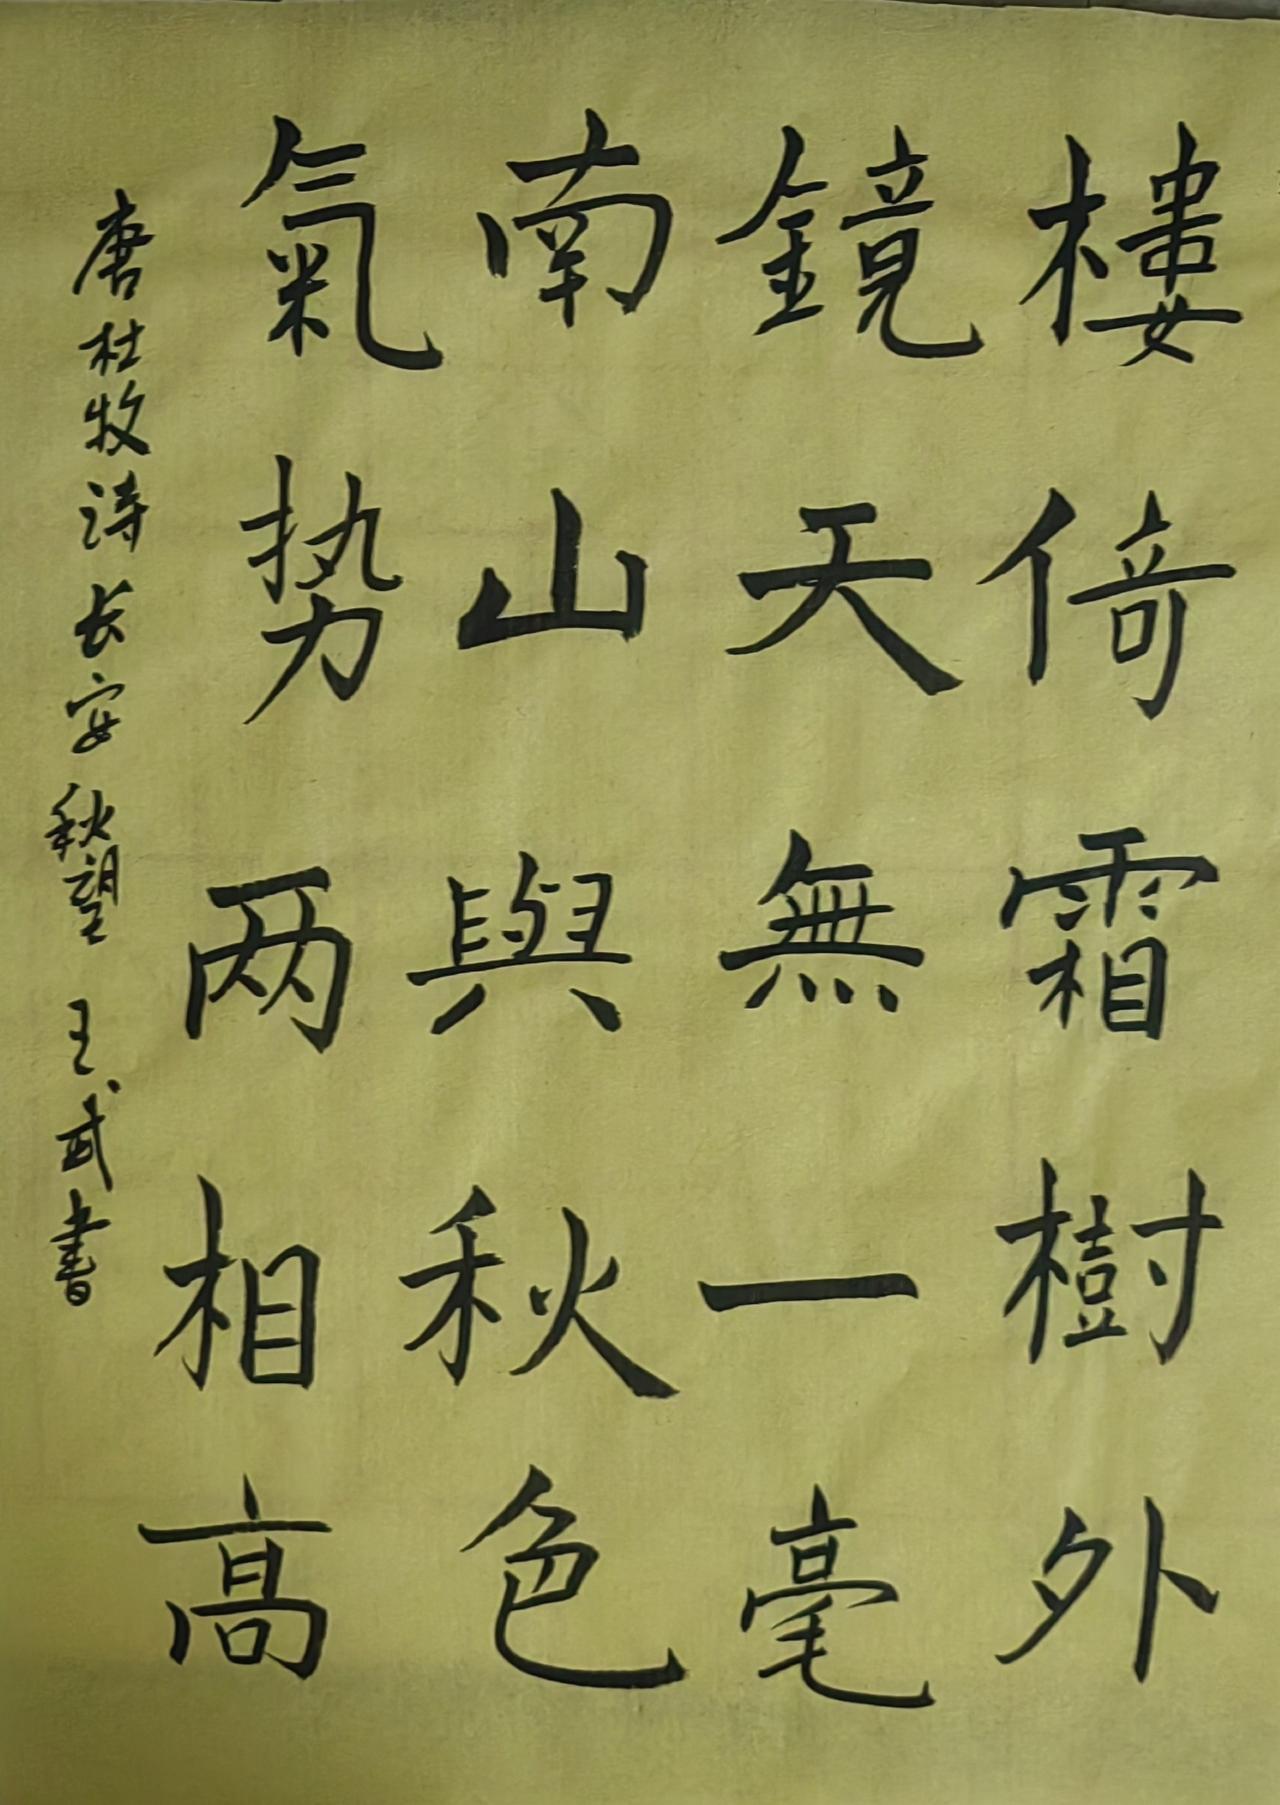 樓倚霜樹外
鏡天無一毫
南山與秋色
氣势两相高
唐杜牧诗长安秋望 王武書